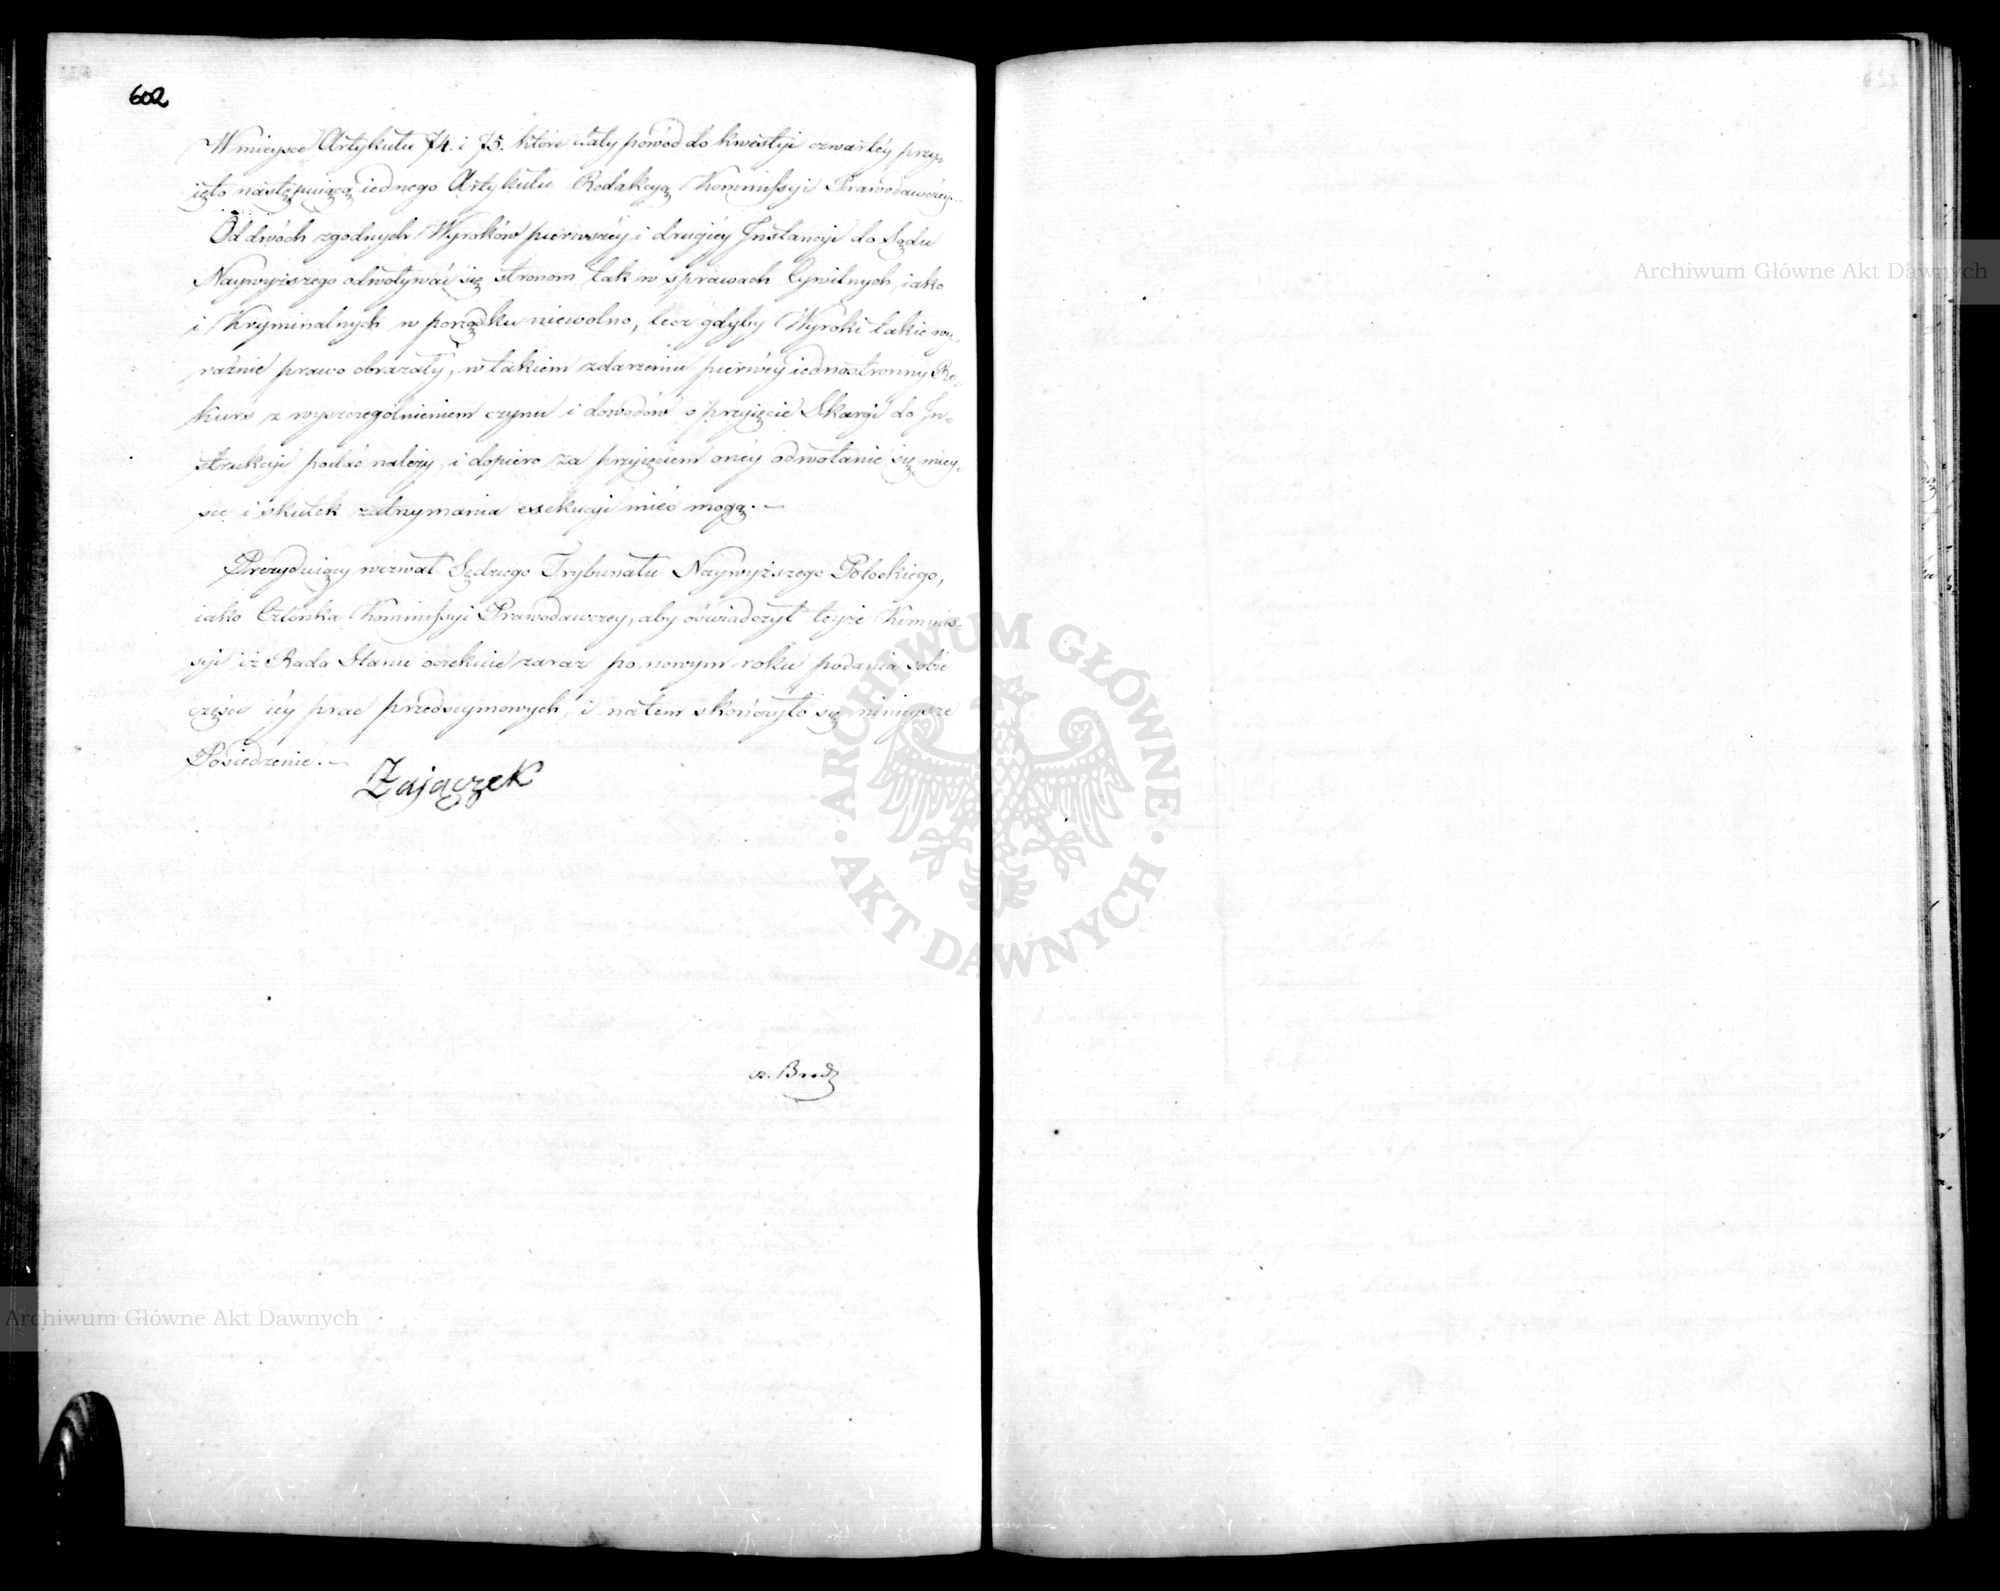 602
W mieysce Artykułu 74. i 75. które dały powód do kwestyi czwartéy przy-
ięto następuiącą iednego Artykułu Redakcyą Kommissyi Prawodawczey.
Od dwóch zgodnych Wyroków pierwszéy i drugiéy Instancyi do Sądu
Naywyższego odwoływać się stronom tak w sprawach Cywilnych, iako
i Kryminalnych w porządku niewolno, lecz gdyby Wyroki takie wy-
raźnie prawo obrażały, w takiem zdarzeniu pierwéy iednostronny Re-
kurs z wyszczególnieniem czynu i dowodów o przyięcie Skargi do In-
strukcyi podać należy, i dopiero za przyięciem onéy odwołanie się miey-
sce i skutek zatrzymania exekucyi mieć mogą. —
Prezyduiący wezwał Sędziego Trybunału Naywyższego Potockiego,
iako Członka Kommissyi Prawodawczey, aby oświadczył teyże Kommis-
syi iż Rada Stanu oczekuie zaraz po nowym roku podania sobie
części iéy prac przedseymowych, i natem skończyło się ninieysze
Posiedzenie. —
Zajączek
Archiwum Główne Akt Dawnych
ARCHIWUM GŁÓWNE
AKT DAWNYCH
Archiwum Główne Akt Dawnych